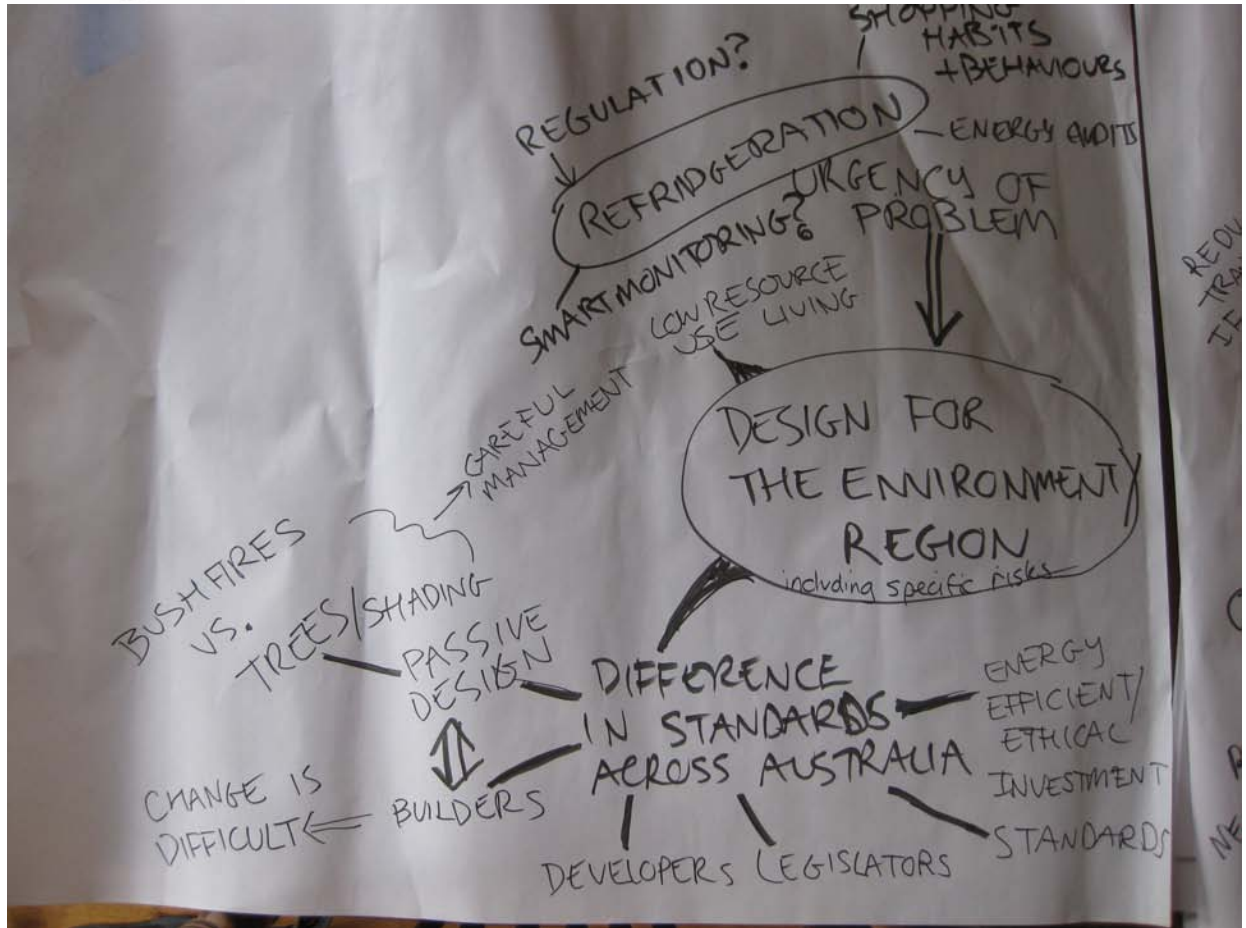 SHOPPING
HABITS
+BEHAVIOURS
REGULATION?
REFRIDGERATION
ENERGY AUDITS
SMART MONITORING?
URGENCY OF
PROBLEM
LOW RESOURCE
USE LIVING
CAREFUL
MANAGEMENT
DESIGN FOR
THE ENVIRONMENT/
REGION
including specific risks
BUSHFIRES
VS.
TREES/SHADING
PASSIVE
DESIGN
DIFFERENCE
IN STANDARDS
ACROSS AUSTRALIA
ENERGY
EFFICIENT/
ETHICAL
INVESTMENT
CHANGE IS
DIFFICULT
BUILDERS
DEVELOPERS
LEGISLATORS
STANDARDS